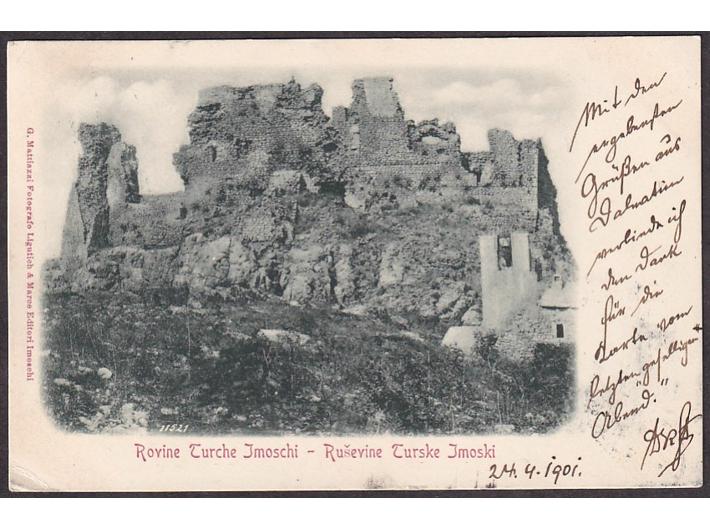 G. Mattiazzi Fotografo Ligutich & Maroe Editori Imoschi
11521
Rovine Turche Imoschi - Ruševine Turske Imoski
24. 4. 1901.
Mit den
ergebensten
Grüßen aus
Dalmatien
verbinde ich
den Dank
für die
Karte vom
letzten geselligen
"Abend".